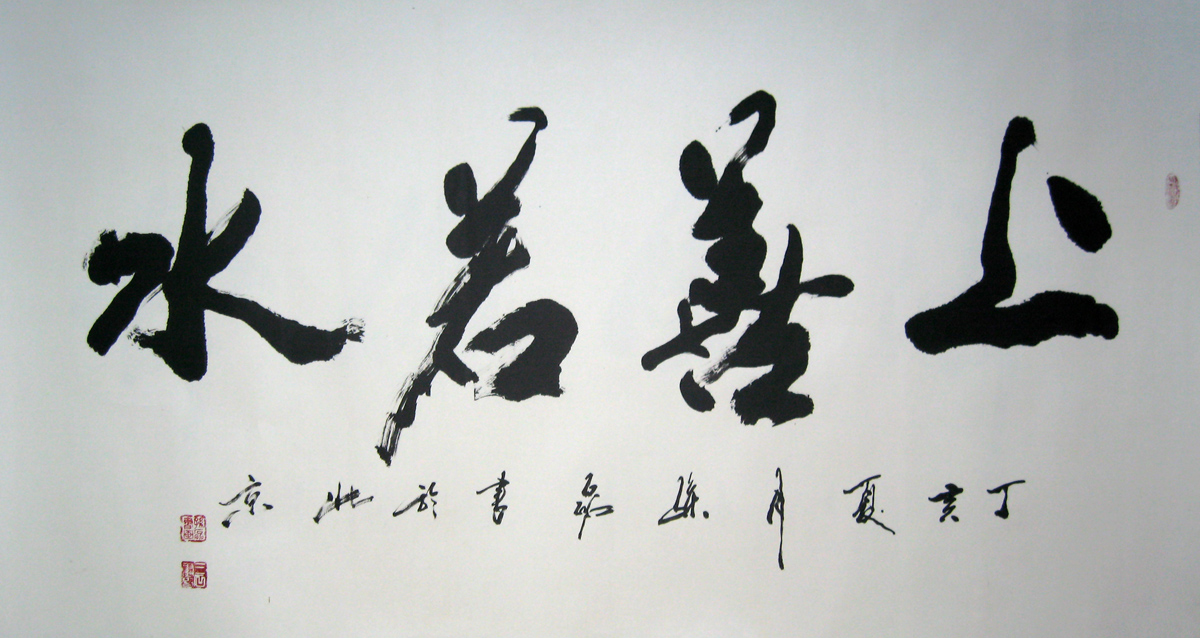 上善若水
丁亥夏月張磊書於北京